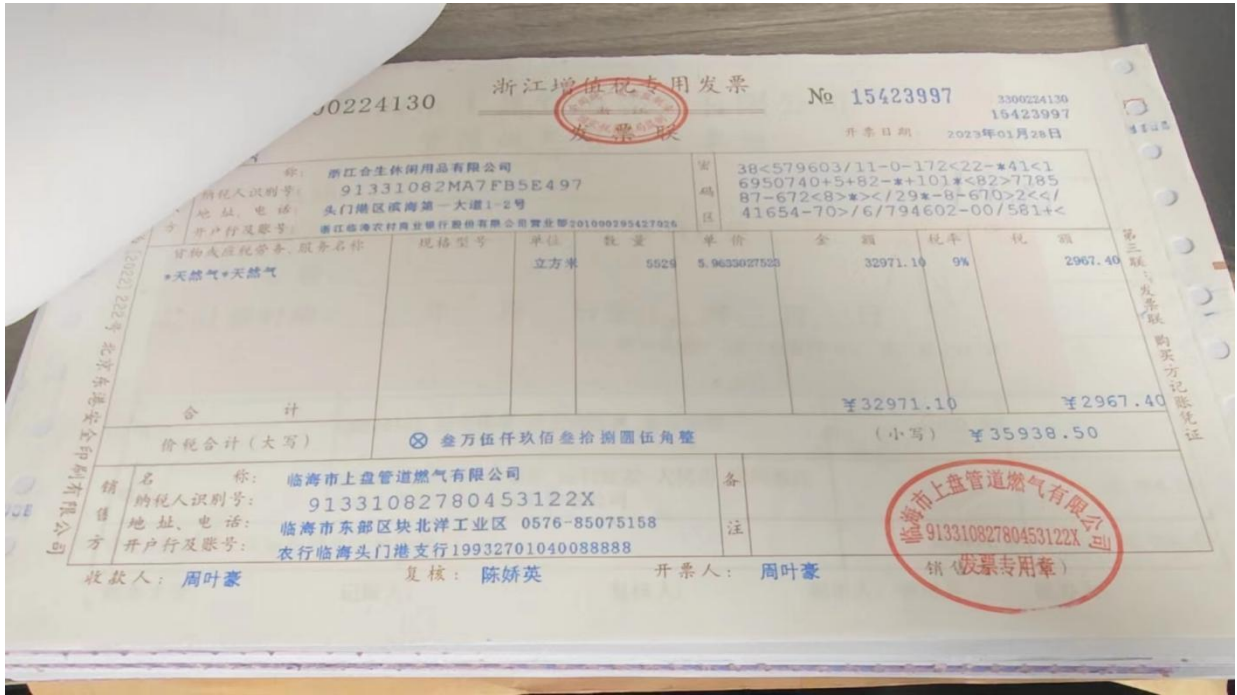 浙江增值税专用发票
发票联
00224130
№ 15423997
3300224130
15423997
开票日期
2023年01月28日
称: 浙江合生休闲用品有限公司
纳税人识别号: 91331082MA7FB5E497
地址、电话: 头门港区滨海第一大道1-2号
开户行及账号: 浙江临海农村商业银行股份有限公司营业部201000295427026
密码区
38<579603/11-0-172<22-*41<1
6950740+5+82-*+101*<82>7785
87-672<8>*></29*-8-670>2<</
41654-70>/6/794602-00/581+<
货物或应税劳务、服务名称 规格型号 单位 数量 单价 金额 税率 税额
*天然气*天然气 立方米 5529 5.9633027523 32971.10 9% 2967.40
合计 ¥32971.10 ¥2967.40
价税合计(大写) ⊗ 叁万伍仟玖佰叁拾捌圆伍角整 (小写) ¥35938.50
销售方
名称: 临海市上盘管道燃气有限公司
纳税人识别号: 91331082780453122X
地址、电话: 临海市东部区块北洋工业区 0576-85075158
开户行及账号: 农行临海头门港支行19932701040088888
备注
收款人: 周叶豪 复核: 陈娇英 开票人: 周叶豪
临海市上盘管道燃气有限公司
91331082780453122X
发票专用章
第三联:发票联 购买方记账凭证
(2022)222号 北京东港安全印刷有限公司